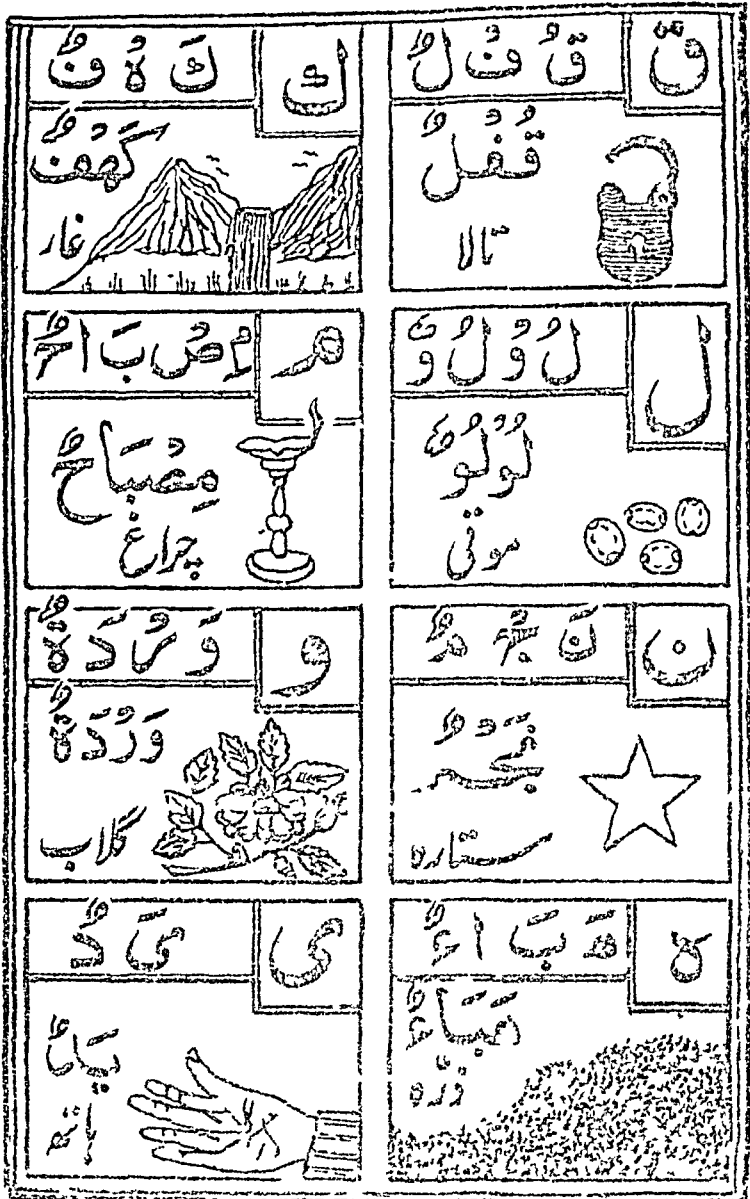 ق
قُ فْ لٌ
قُفْلٌ
تالا
ك
كَ هْ فٌ
كَهْفٌ
غار
ل
لُ وْ لُ وٌ
لُوْلُوٌ
موتی
م
مِ صْ بَ ا حٌ
مِصْبَاحٌ
چراغ
ن
نَ جْ مٌ
نَجْمٌ
ستارہ
و
وَ رْ دَ ةٌ
وَرْدَةٌ
گلاب
ه
هَ بَ ا ءٌ
هَبَاءٌ
ذرہ
ى
ىَ دٌ
ہاتھ